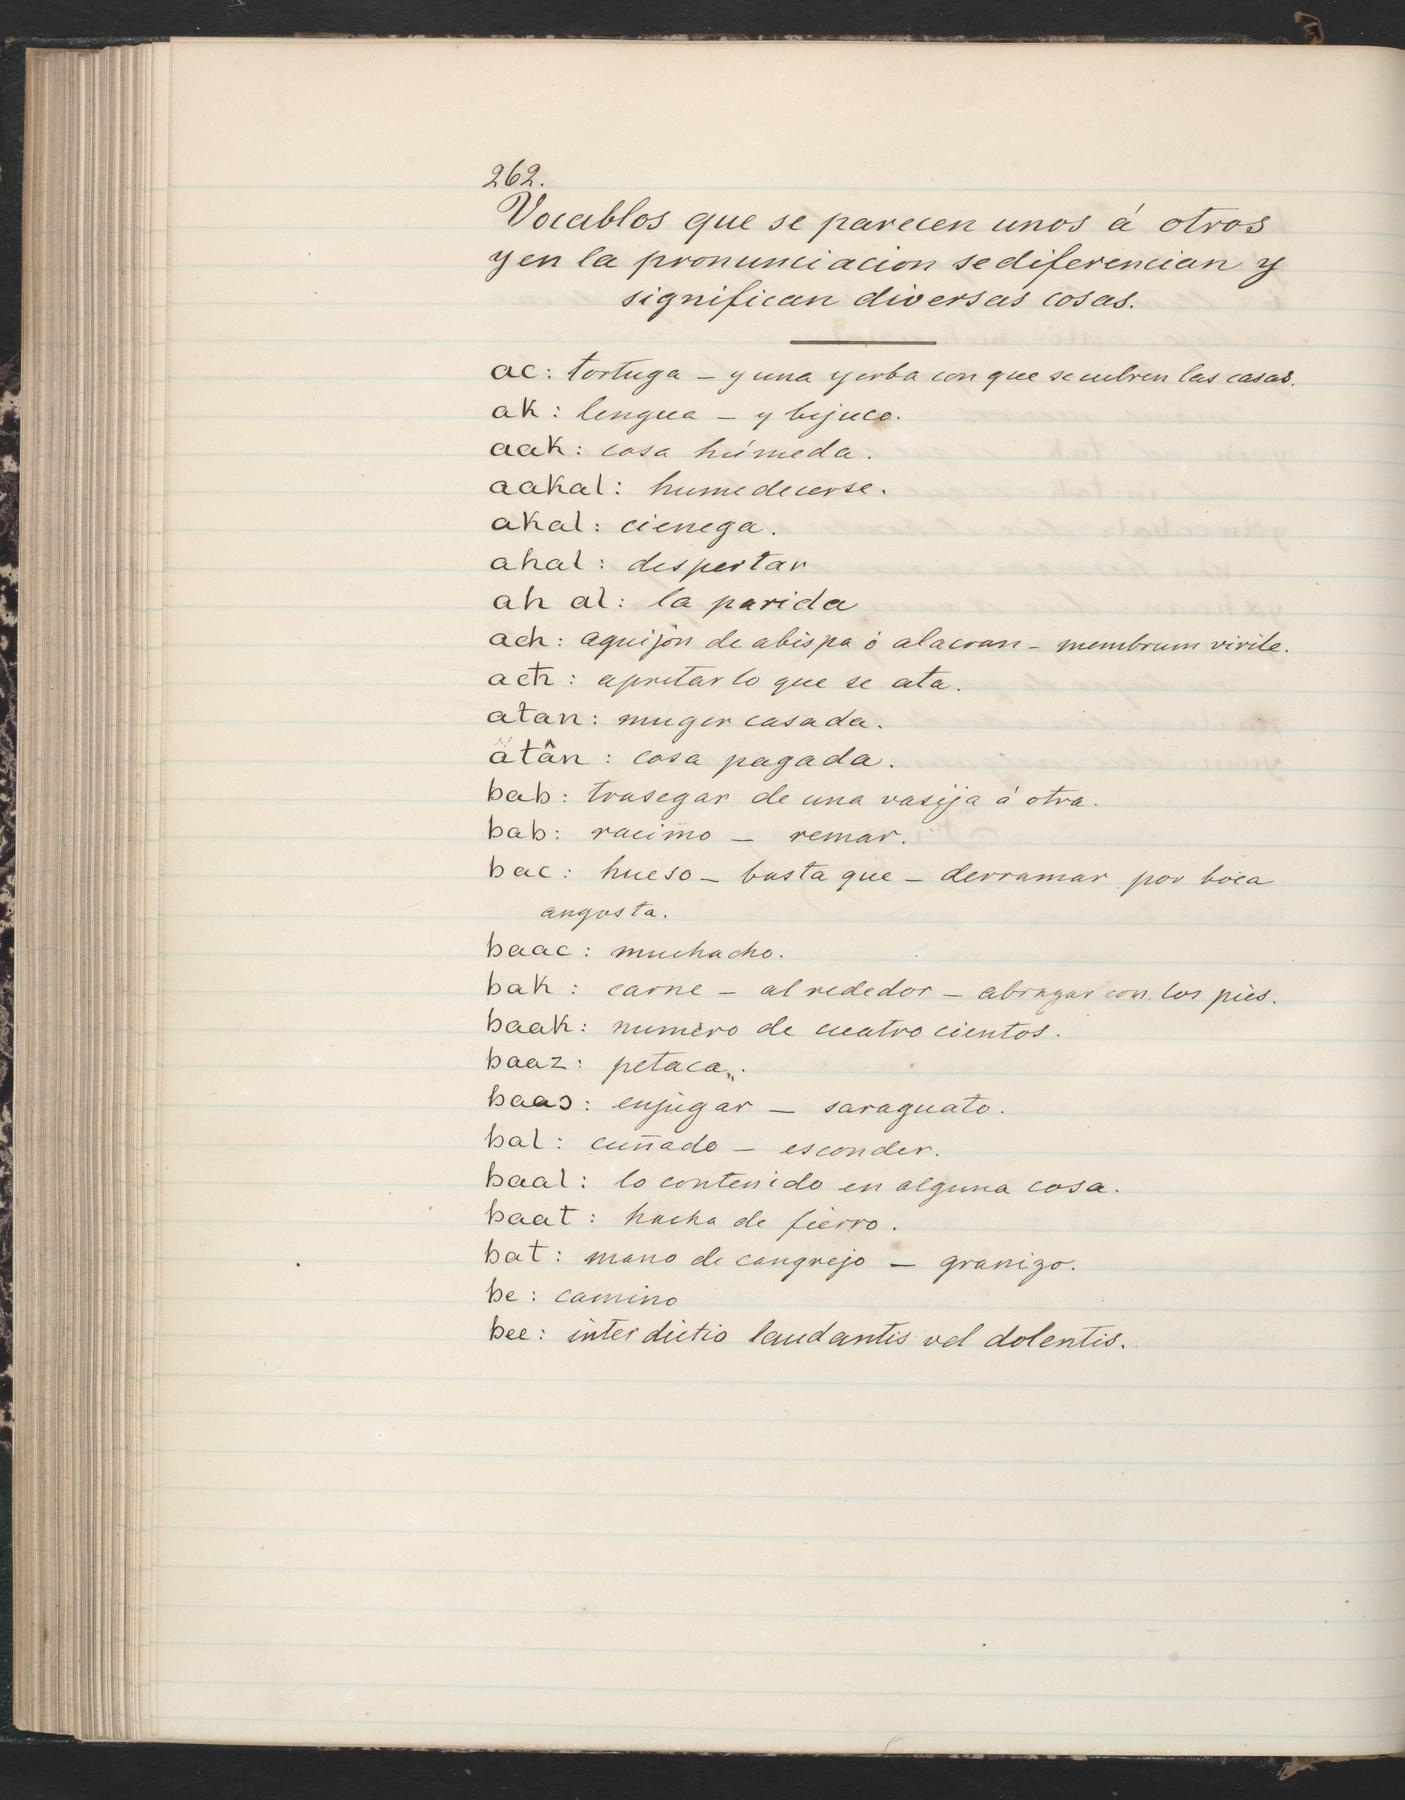 262.
Vocablos que se parecen unos á otros
y en la pronunciacion se diferencian y
significan diversas cosas.
ac: tortuga – y una yerba con que se cubren las casas.
ak: lengua – y bejuco.
aak: cosa húmeda.
aakal: humedecerse.
akal: cienega.
ahal: despertar
ah al: la parida
ach: aguijón de abispa ó alacran – membrum virile.
acħ: apretar lo que se ata.
atan: muger casada.
atân: cosa pagada.
bab: trasegar de una vasija á otra.
bab: racimo – remar.
bac: hueso – basta que – derramar por boca
angosta.
baac: muchacho.
bak: carne – al rededor – abrazar con los piés.
baak: numéro de cuatro cientos.
baaz: petaca.
baaɔ: enjugar – saraguato.
bal: cuñado – esconder.
baal: lo contenido en alguna cosa.
baat: hacha de fierro.
bat: mano de cangrejo – granizo.
be: camino
bee: interdictio laudantis vel dolentis.